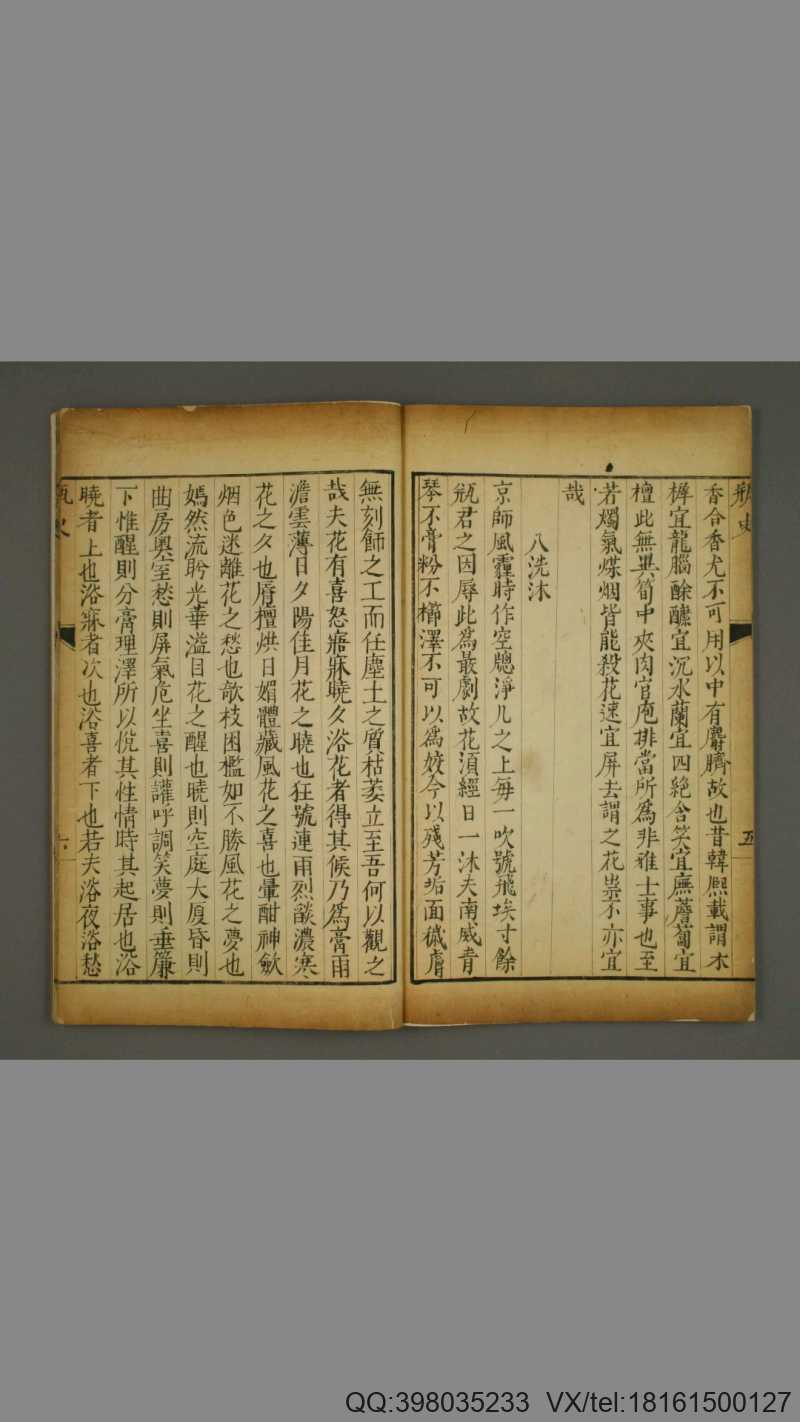 瓶史
五
香合香尤不可用以中有麝臍故也昔韓熙載謂木
樨宜龍腦酴醿宜沉水蘭宜四絕含笑宜麝薝蔔宜
檀此無異筍中夾肉官庖排當所為非雅士事也至
若燭氣煤烟皆能殺花速宜屏去謂之花祟不亦宜
哉
八洗沐
京師風霾時作空牕淨几之上每一吹號飛埃寸餘
瓶君之困辱此為最劇故花湏經日一沐夫南威青
琴不膏粉不櫛澤不可以為姣今以殘芳垢面穢膚
無刻飾之工而任塵土之質枯萎立至吾何以觀之
哉夫花有喜怒寤寐曉夕浴花者得其候乃為膏雨
澹雲薄日夕陽佳月花之曉也狂號連雨烈燄濃寒
花之夕也唇檀烘日媚體藏風花之喜也暈酣神歛
烟色迷離花之愁也欹枝困檻如不勝風花之夢也
嫣然流盻光華溢目花之醒也曉則空庭大廈昏則
曲房奧室愁則屏氣危坐喜則讙呼調笑夢則垂簾
下帷醒則分膏理澤所以悅其性情時其起居也浴
曉者上也浴寐者次也浴喜者下也若夫浴夜浴愁
瓶史
六
QQ:398035233 VX/tel:18161500127